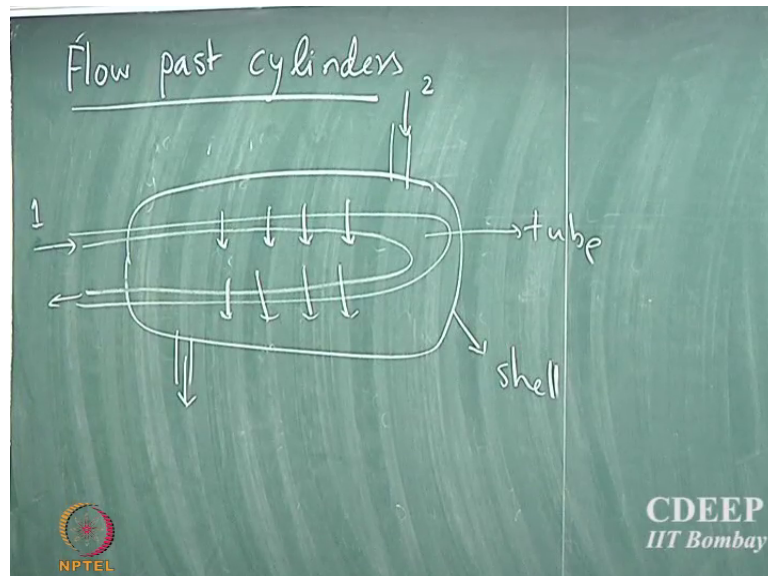 Flow past cylinders
2
1
tube
shell
NPTEL
CDEEP
IIT Bombay